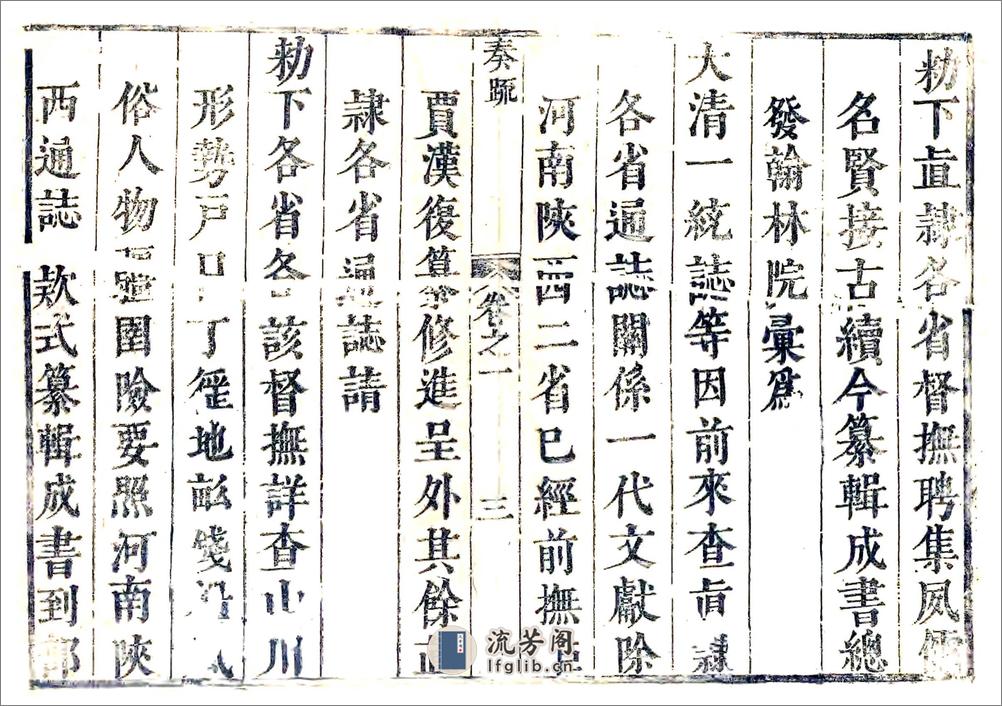 勑下直隷各省督撫聘集夙儒
名賢接古續今纂輯成書總
發翰林院彙爲
大清一統誌等因前來查直隷
各省通誌關係一代文獻除
河南陝西二省已經前撫
奏疏
卷之一
三
賈漢復纂修進呈外其餘直
隷各省通誌請
勑下各省各該督撫詳查山川
形勢戸口丁徭地畝錢
俗人物疆圉險要照河南陝
西通誌欵式纂輯成書到部
流芳阁
lfglib.cn